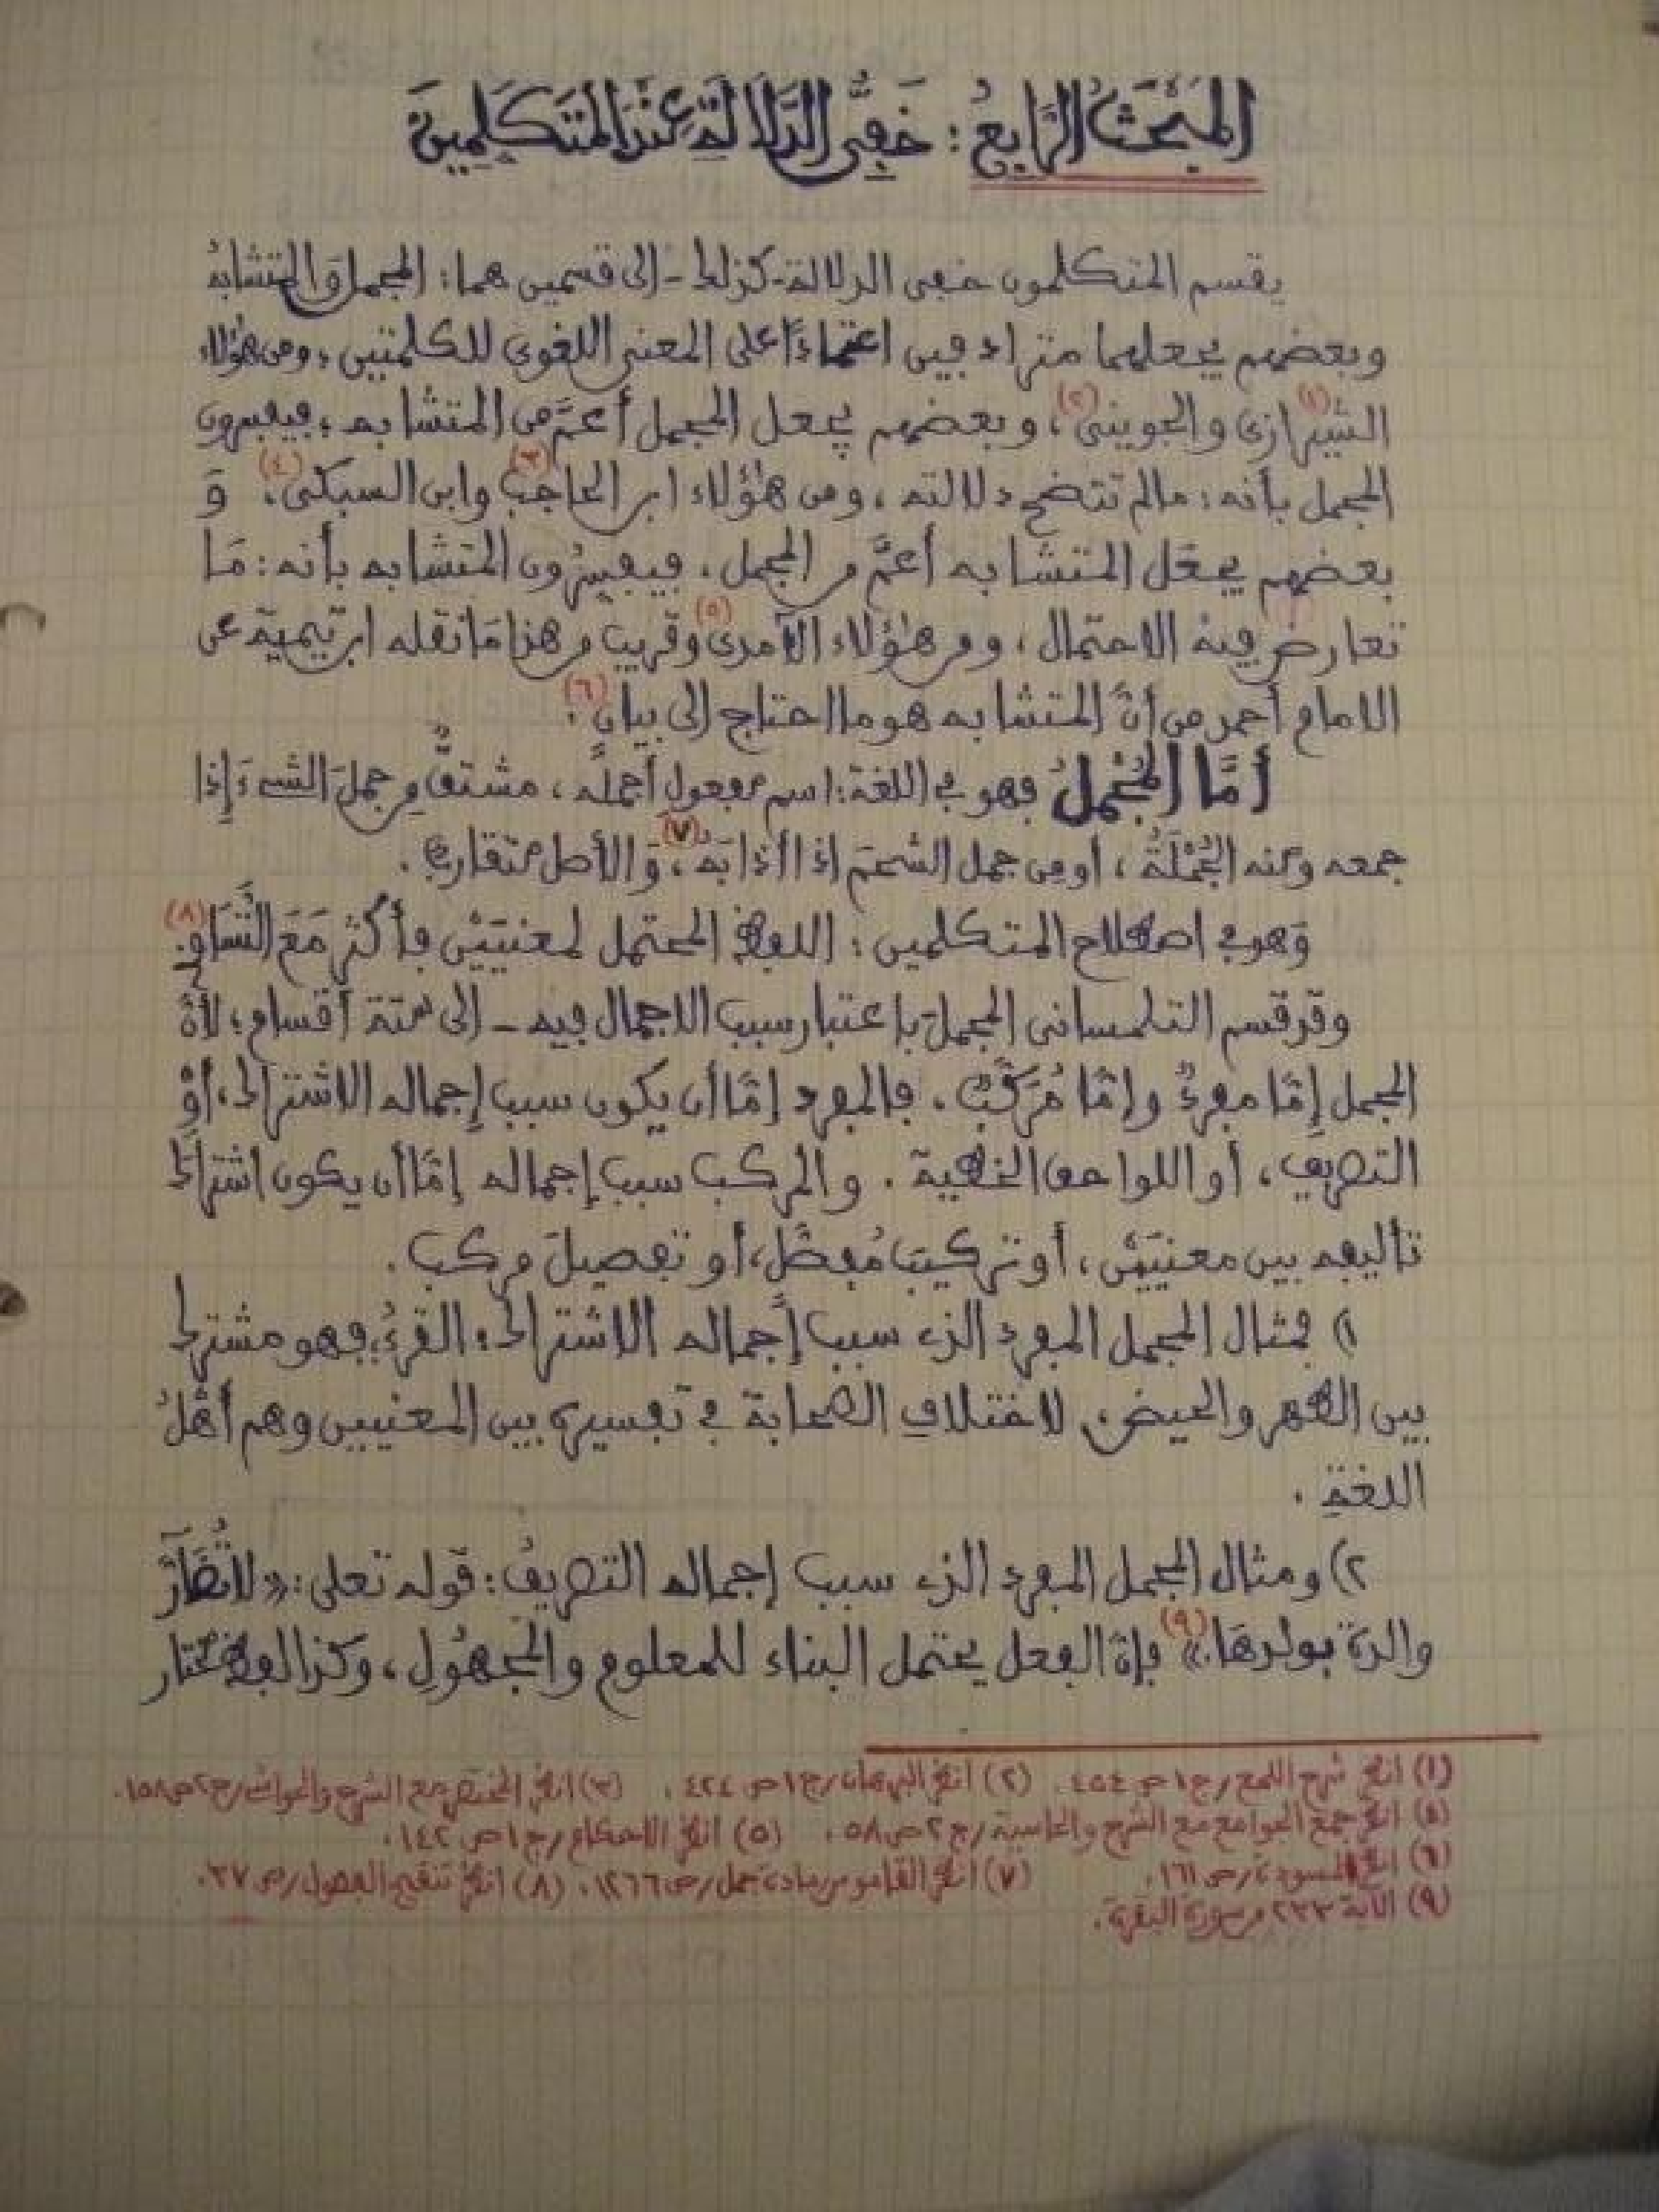 المَبْحَثُ الرَّابِعُ : خَفِيُّ الدَّلَالَةِ عِنْدَ المُتَكَلِّمِينَ
يقسم المتكلمون خفي الدلالة - كذلك - إلى قسمين هما : المجمل وَالمتشابهُ
وبعضهم يجعلهما مترادفين اعتمادًا على المعنى اللغوي للكلمتين ؛ ومن هؤلاء
الشيرازي(١) والجويني(٢) ، وبعضهم يجعل المجمل أعمَّ من المتشابه ؛ فيفسرون
المجمل بأنه : مالم تتضح دلالته ، ومن هؤلاء ابن الحاجب(٣) وابن السبكي(٤) ، وَ
بعضهم يجعَل المتشابه أعمَّ من المجمل ، فيفسِّرُون المتشابه بأنه : مَا
تعارض فيه الاحتمال ، ومن هؤلاء الآمدي(٥) وقريب من هذا مَا نقله ابن تيمية عن
الامام أحمد من أنَّ المتشابه هو ما احتاج إلى بيان(٦) .
أمَّا المُجْمَلُ فهو في اللغة : اسم مفعول أجمله ، مشتقٌّ من جملَ الشيءَ إِذا
جمعه ومنه الجُمْلَةُ ، أو من جمل الشحمَ اذا أذابَهُ(٧) ، وَالأصل متقارب .
وَهو في اصطلاح المتكلمين : اللفظ المحتمل لمعنيَيْن فأكثر مَعَ التَّسَاوِي(٨) .
وقد قسم التلمساني المجملَ - باعتبار سبب الاجمال فيه - إلى ستة أقسام ؛ لأنَّ
المجمل إِمَّا مفردٌ وإمَّا مُرَكَّبٌ . فالمفرد إمَّا أن يكون سبب إجماله الاشتراك ، أوْ
التصريف ، أو اللواحق الخطية . والمركب سبب إجماله إمَّا أن يكون اشتراكَ
تأليفه بين معنيَيْن ، أو تركيبَ مُفصَّل ، أو تفصيلَ مركب .
١) فمثال المجمل المفرد الذي سبب إجماله الاشتراك : القرءُ ؛ فهو مشترك
بين الطهر والحيض ، لاختلافِ الصحابة في تفسيره بين المعنيين وهم أهْلُ
اللغةِ .
٢) ومثال المجمل المفرد الذي سبب إجماله التصريفُ : قوله تعلى : « لَا تُضَآرَّ
والدة بولدهَا »(٩) فإنَّ الفعل يحتمل البناء للمعلوم والمجهُولِ ، وكذا لفظ مختار
(١) انظر شرح اللمع / ج ١ ص ٤٥٤ . (٢) انظر البرهان / ج ١ ص ٤٢٤ . (٣) انظر المختصر مع الشرح والحواشي / ج ٢ ص ١٥٨ .
(٤) انظر جمع الجوامع مع الشرح والحاشية / ج ٢ ص ٥٨ . (٥) انظر الاحكام / ج ١ ص ١٤٢ .
(٦) انظر المسودة / ص ١٦١ . (٧) انظر القاموس / مادة جمل / ص ١٢٦٦ . (٨) انظر تنقيح الفصول / ص ٣٧ .
(٩) الآية ٢٣٣ من سورة البقرة .